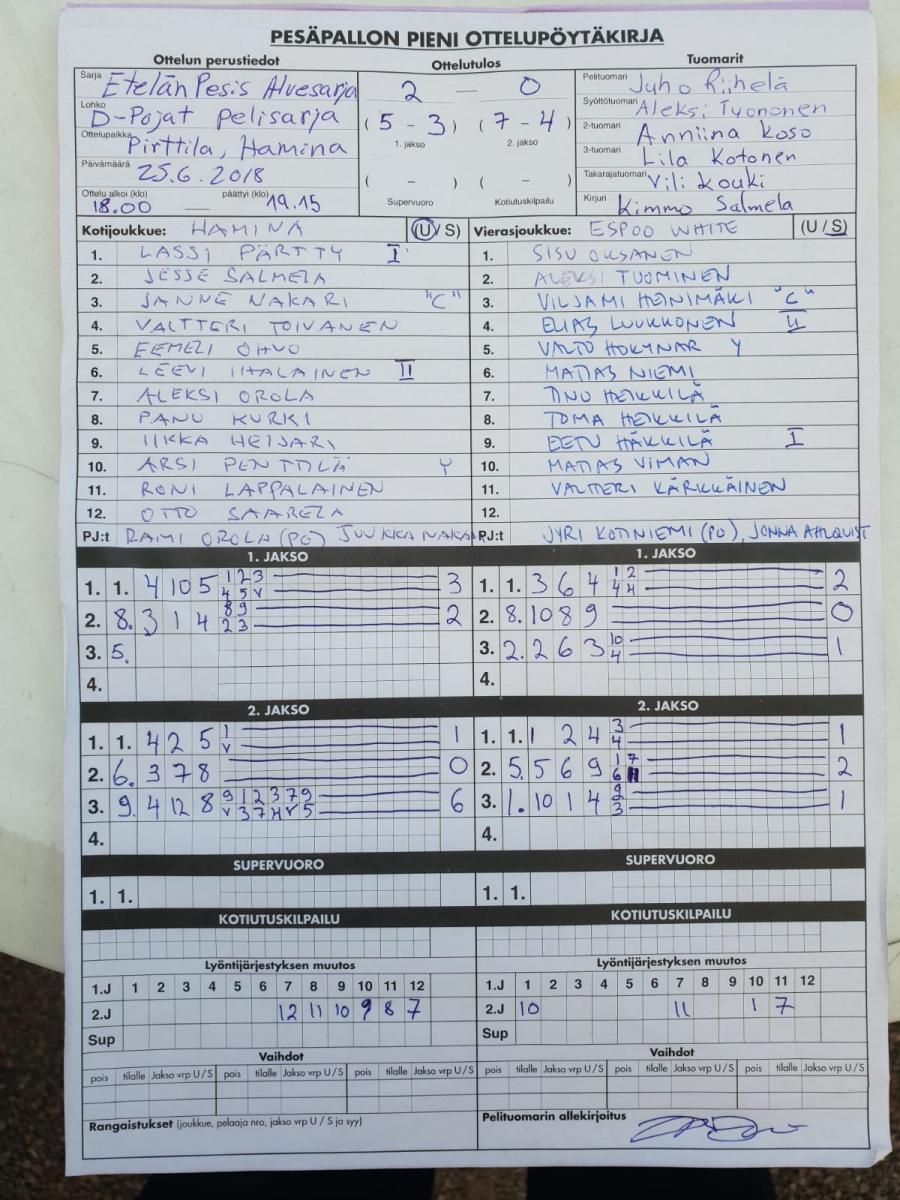 PESÄPALLON PIENI OTTELUPÖYTÄKIRJA
Ottelun perustiedot Ottelutulos Tuomarit
Sarja EtelänPesis Aluesarja
Lohko D-Pojat pelisarja
Ottelupaikka Pirttila, Hamina
Päivämäärä 25.6.2018
Ottelu alkoi (klo) 18.00 — päättyi (klo) 19.15
2 — 0
(5 - 3) (7 - 4)
1. jakso 2. jakso
( - ) ( - )
Supervuoro Kotiutuskilpailu
Pelituomari Juho Riihelä
Syöttötuomari Aleksi Tyononen
2-tuomari Anniina Koso
3-tuomari Lila Kotonen
Takarajatuomari Vili Kouki
Kirjuri Kimmo Salmela
Kotijoukkue: HAMINA (U/S)
1. LASSI PÄRTTY I
2. JESSE SALMELA
3. JANNE NAKARI "C"
4. VALTTERI TOIVANEN
5. EEMELI OHVO
6. LEEVI IHALAINEN II
7. ALEKSI OROLA
8. PANU KURKI
9. IIKKA HEIJARI
10. ARSI PENTTILÄ Y
11. RONI LAPPALAINEN
12. OTTO SAARELA
PJ:t RAIMI OROLA (PO) JUUKKA NAKARI
Vierasjoukkue: ESPOO WHITE (U/S)
1. SISU OKSANEN
2. ALEKSI TUOMINEN
3. VILJAMI HEINIMÄKI "C"
4. ELIAS LUUKKONEN II
5. VALTO HOKYNAR Y
6. MATIAS NIEMI
7. TINO HEIKKILÄ
8. TOMA HEIKKILÄ
9. EETU HÄKKILÄ I
10. MATIAS VIMAN
11. VALTTERI KÄRKKÄINEN
12.
PJ:t JYRI KOTINIEMI (PO), JONNA AHLQVIST
1. JAKSO
1. 1. 4 10 5 1 2 3 3
4 5 V
2. 8. 3 1 4 8 9 2
2 3
3. 5.
4.
1. JAKSO
1. 1. 3 6 4 1 2 2
4 4
2. 8. 10 8 9 0
3. 2. 2 6 3 10 1
4
4.
2. JAKSO
1. 1. 4 2 5 1 1
V
2. 6. 3 7 8 0
3. 9. 4 12 8 9 1 2 3 7 9 6
V 3 7 H V 5
4.
2. JAKSO
1. 1. 1 2 4 3 1
4
2. 5. 5 6 9 1 7 2
6 H
3. 1. 10 1 4 2 1
3
4.
SUPERVUORO
1. 1.
SUPERVUORO
1. 1.
KOTIUTUSKILPAILU
KOTIUTUSKILPAILU
Lyöntijärjestyksen muutos
1.J 1 2 3 4 5 6 7 8 9 10 11 12
2.J 12 11 10 9 8 7
Sup
Lyöntijärjestyksen muutos
1.J 1 2 3 4 5 6 7 8 9 10 11 12
2.J 10 11 1 7
Sup
Vaihdot
pois tilalle Jakso vrp U/S pois tilalle Jakso vrp U/S pois tilalle Jakso vrp U/S
Vaihdot
pois tilalle Jakso vrp U/S pois tilalle Jakso vrp U/S pois tilalle Jakso vrp U/S
Rangaistukset (joukkue, pelaaja nro, jakso vrp U / S ja syy)
Pelituomarin allekirjoitus